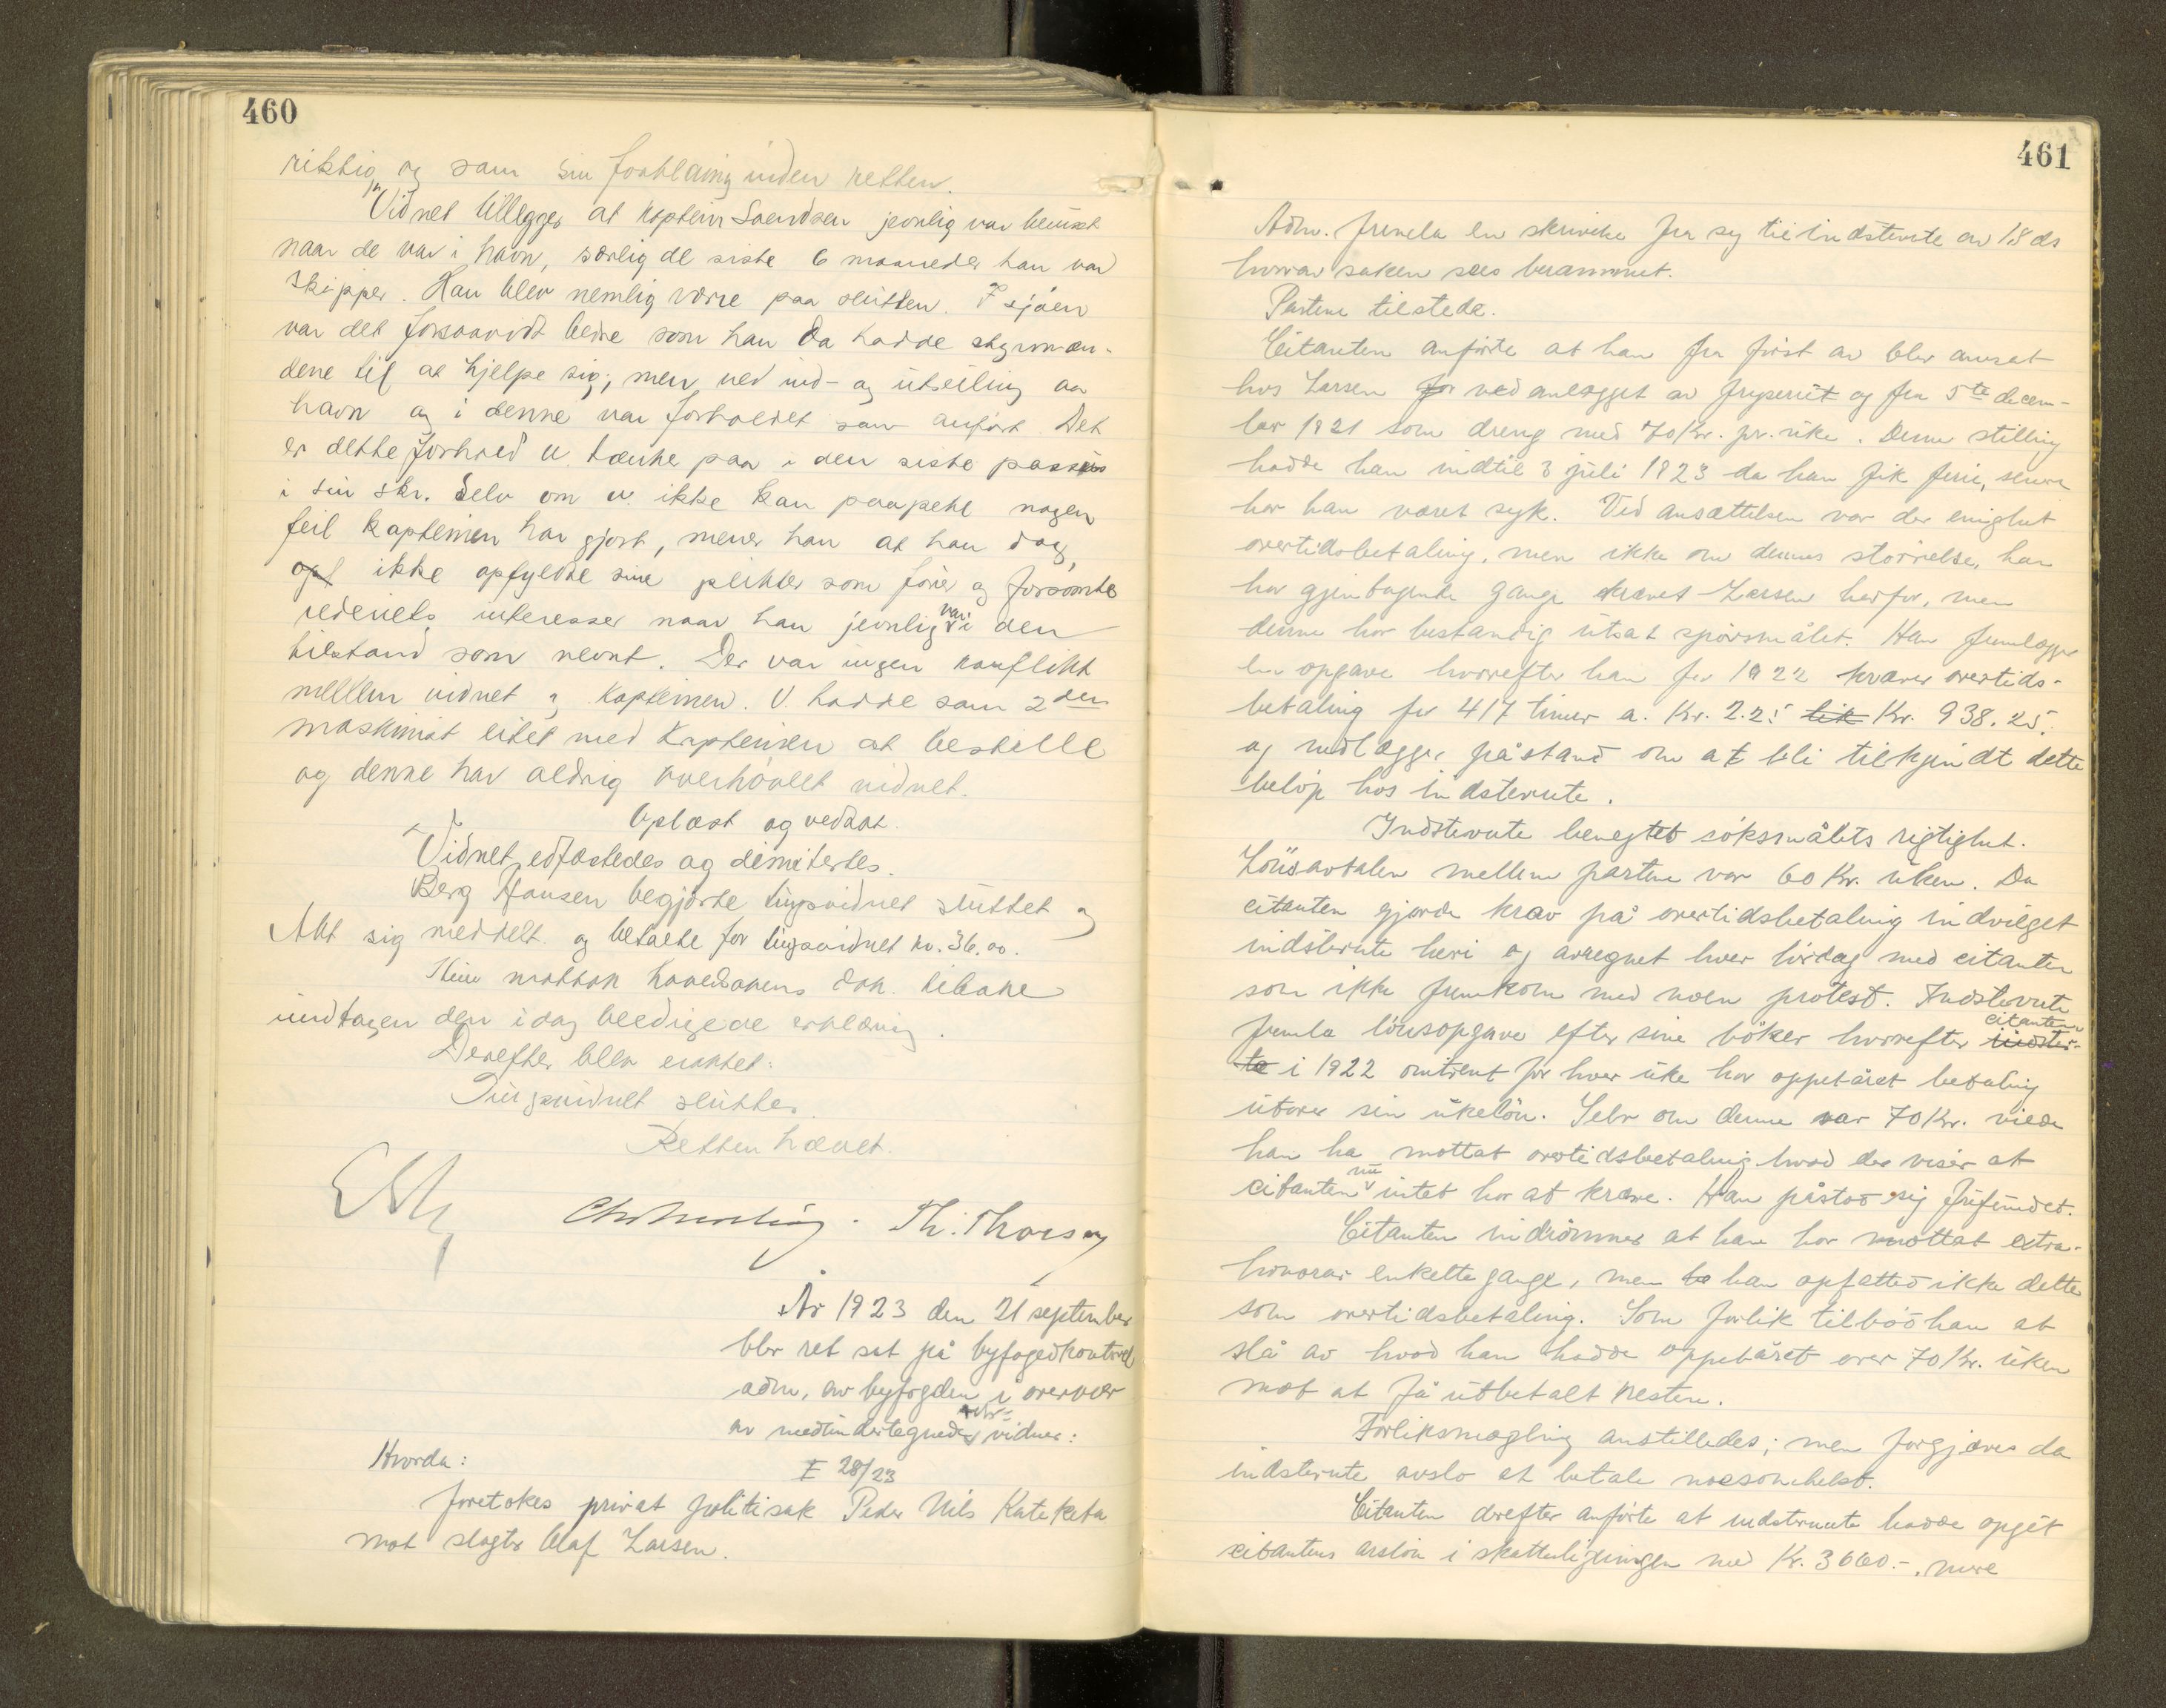 460
riktig og som sin forklaring inden retten.
Vidnet tillegger at kaptein Svendsen jevnlig var beruset
naar de var i havn, særlig de siste 6 maaneder han var
skipper. Han blev nemlig værre paa slutten. I sjøen
var det forsaavidt bedre som han da hadde styrmæn-
dene til at hjelpe sig; men ved ind- og utseiling av
havn og i denne var forholdet som anført. Det
er dette forhold v. tænke paa i den siste passus
i sin skr. Selv om v. ikke kan paapeke nogen
feil kapteinen har gjort, mener han at han dog
opf ikke opfyldte sine plikter som fører og forsømte
rederiets interesser naar han jevnlig var i den
tilstand som nevnt. Der var ingen konflikt
mellem vidnet og kapteinen. V. hadde som 2den
maskinist litet med kapteinen at bestille
og denne har aldrig overhøvlet vidnet.
Oplæst og vedtat.
Vidnet edfæstedes og dimitertes.
Berg Hansen begjærte tingsvidnet sluttet og
Akt sig meddelt og betalte for tingsvidnet kr. 36.00.
mottok hovedsakens dok. tilbake
undtagen den idag beedigede erklæring.
Derefter blev eragtet:
Tingsvidnet sluttes.
Retten hævet.
Th. Thorsen
År 1923 den 21 september
blev ret sat på byfogedkontoret
adm. av byfogden i overvær
av medundertegnede retsvidner:
Hvorda:
E 28/23
foretokes privat politisak Peder Nils Kateketa
mot slagter Olaf Larsen.
461
Adm. fremla en skrivelse fra sig til indstevnte av 18 ds
hvorav saken sees berammet.
Partene tilstede.
Citanten anførte at han fra først av blev ansat
hos Larsen for ved anlægget av fryseriet og fra 5te decem-
ber 1921 som dreng med 70 Kr. pr. uke. Denne stilling
hadde han indtil 3 juli 1923 da han fik ferie, senere
har han været syk. Ved ansættelsen var der enighet
overtidsbetaling, men ikke om dennes størrelse, han
har gjentagende gange krævet Larsen herfor, men
denne har bestandig utsat spørsmålet. Han fremlægger
en opgave hvorefter han for 1922 kræver overtids-
betaling for 417 timer a. Kr. 2.25 lik Kr. 938.25.
og nedlægger påstand om at bli tilkjendt dette
beløp hos indstevnte.
Indstevnte benegtet søksmålets rigtighet.
Lønsavtalen mellem partene var 60 Kr. uken. Da
citanten gjorde krav på overtidsbetaling indvilget
indstevnte heri og avregnet hver lørdag med citanten
som ikke fremkom med noen protest. Indstevnte
fremla lønsopgave efter sine bøker hvorefter citanten indstevn-
te i 1922 omtrent for hver uke har oppebåret betaling
utover sin ukeløn. Selv om denne var 70 Kr. vilde
han ha mottat overtidsbetaling hvad der viser at
citanten nu intet har at kræve. Han påstod sig frifundet.
Citanten indrømmer at han har mottat extra-
honorar enkelte gange, men ha han opfattet ikke dette
som overtidsbetaling. Som forlik tilbød han at
slå av hvad han hadde oppebåret over 70 Kr. uken
mot at få utbetalt resten.
Forliksmægling anstilledes; men forgjæves da
indstevnte avslo at betale noesomhelst.
Citanten derefter anførte at indstevnte hadde opgit
citantens årsløn i skatteligningen med Kr. 3660.-, mere